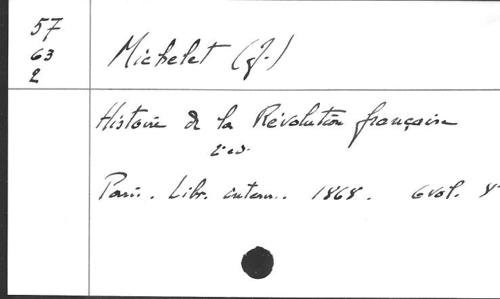 57
63
2
Michelet (J.)
Histoire de la Révolution française
2e ed.
Paris. Libr. intern. 1868. 6 vol. 8°